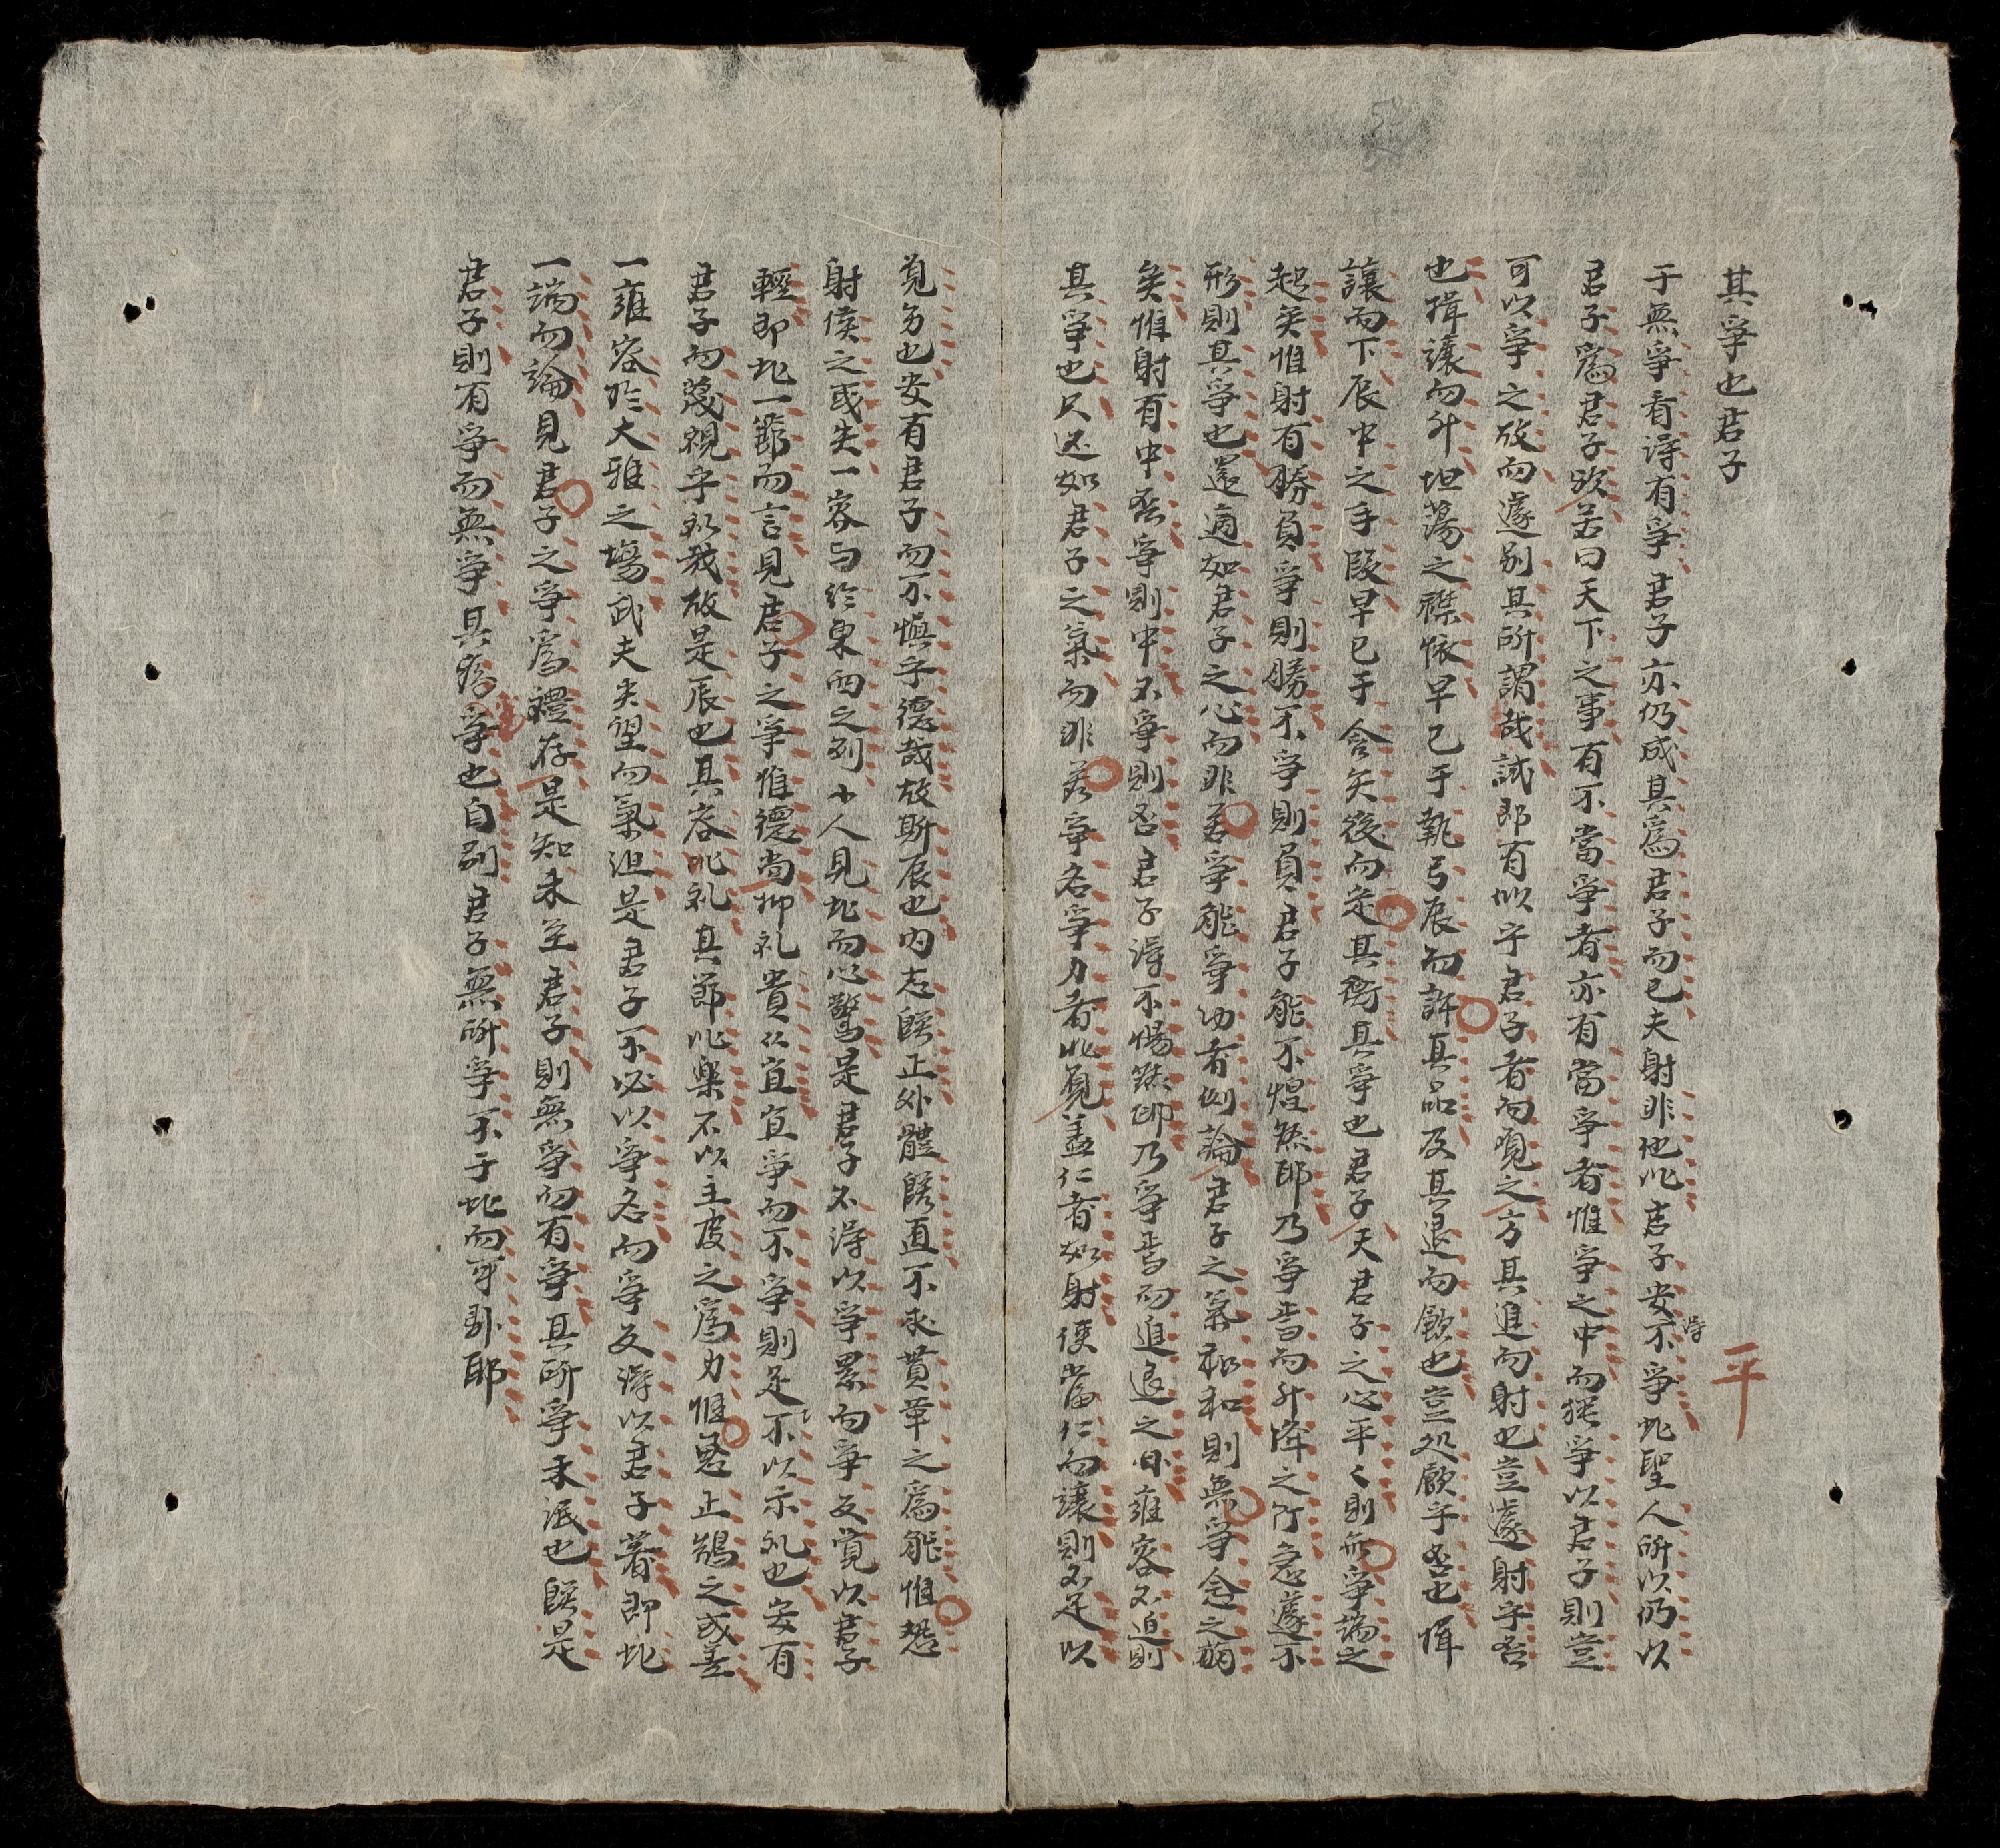 其爭也君子
于無爭看淂有爭君子亦仍成其爲君子而已夫射非他比君子安不淂爭此聖人所以仍以
君子爲君子欤若曰天下之事有不當爭者亦有當爭者惟爭之中而猶爭以君子則豈
可以爭之故而遽别其所謂哉誠即有似乎君子者而覓之方其進而射也豈遽射乎否
也揖讓而升坦蕩之襟懷早已于執弓辰而許其品及其退而飲也豈处飲乎否也揖
讓而下辰中之手段早已于含矢後而定其衡其爭也君子天君子之心平〻則無爭端之
起矣惟射有勝負爭則勝不爭則負君子能不惶然耶乃爭焉而升降之阶急遽不
形則其爭也還適如君子之心而非若爭能爭功者例論君子之氣和和則無爭念之萌
矣惟射有中否爭則中不爭則否君子淂不惕然耶乃爭焉而進退之間雍容不迫則
其爭也只还如君子之氣而非若爭名爭力者比覓盖仁者如射使當仁而讓則不足以
覓勇也安有君子而不慎乎德哉故斯辰也内志既正外體既直不求貫革之爲能惟恐
射侯之或失一容与於東西之列小人見此而心驚是君子不淂以爭累而爭反覓以君子
輕即此一節而言見君子之爭惟德尚抑礼貴仁宜宜爭而不爭則足不以示礼也安有
君子而蔑視乎礼哉故是辰也其容比礼其節比楽不以主皮之爲力惟思正鵠之或差
一雍容於大雅之塲武夫失望而氣沮是君子不必以爭名而爭反淂以君子著即此
一端而論見君子之爭爲禮存是知未至君子則無爭而有爭其所爭未泯也既是
君子則有爭而無爭其爲爭也自别君子無所爭不于此而可見耶
平